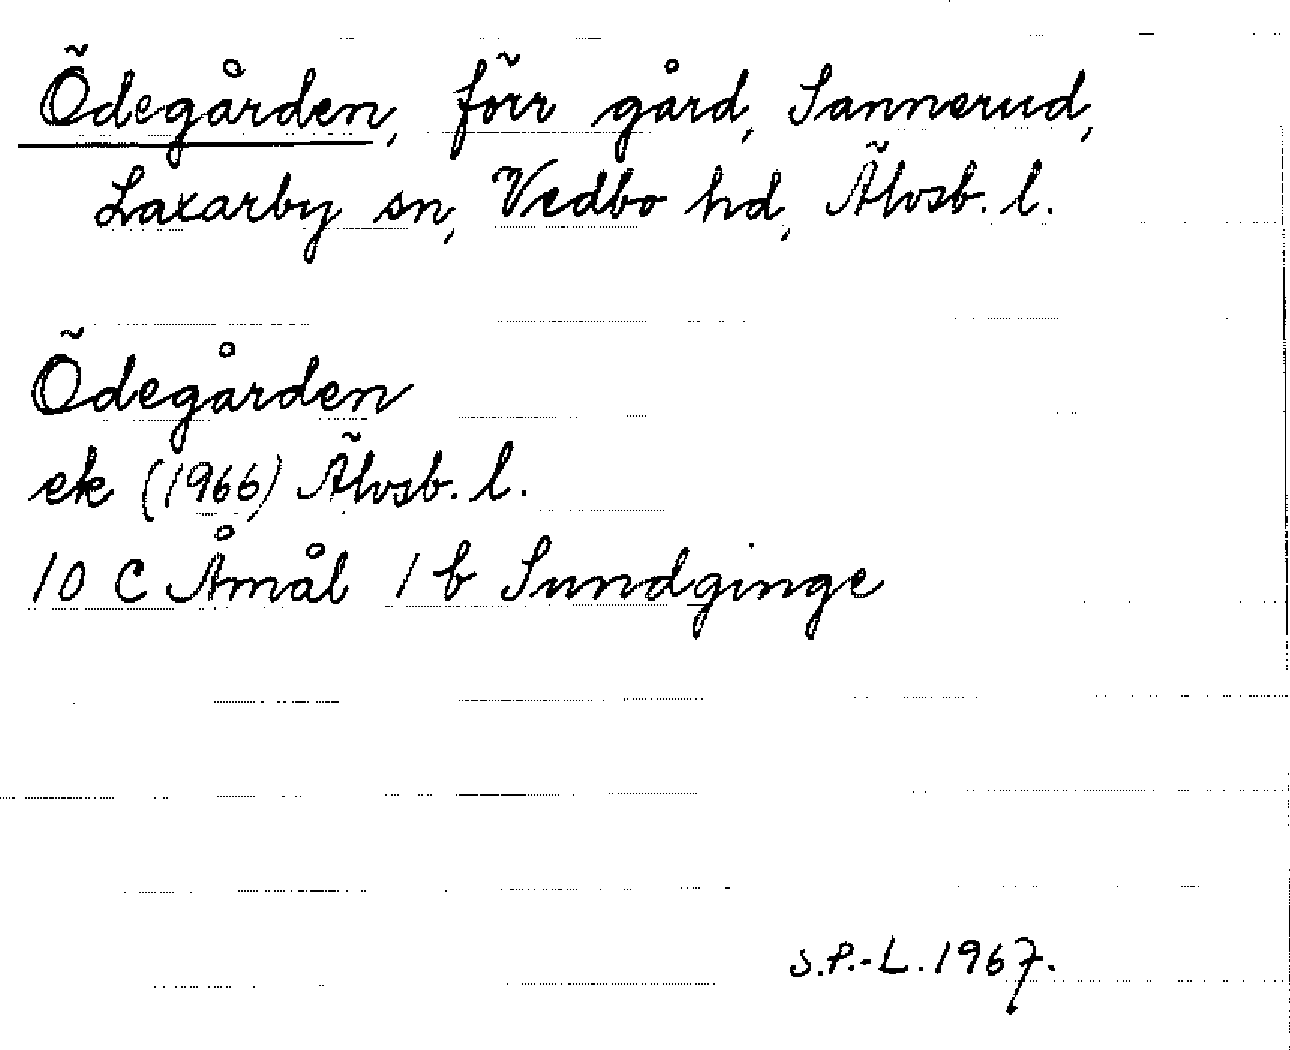 Ödegården, förr gård, Sannerud,
Laxarby sn, Vedbo hd, Älvsb. l.
Ödegården
ek (1966) Älvsb. l.
10 C Åmål 1 b Sundginge
S.P.-L. 1967.